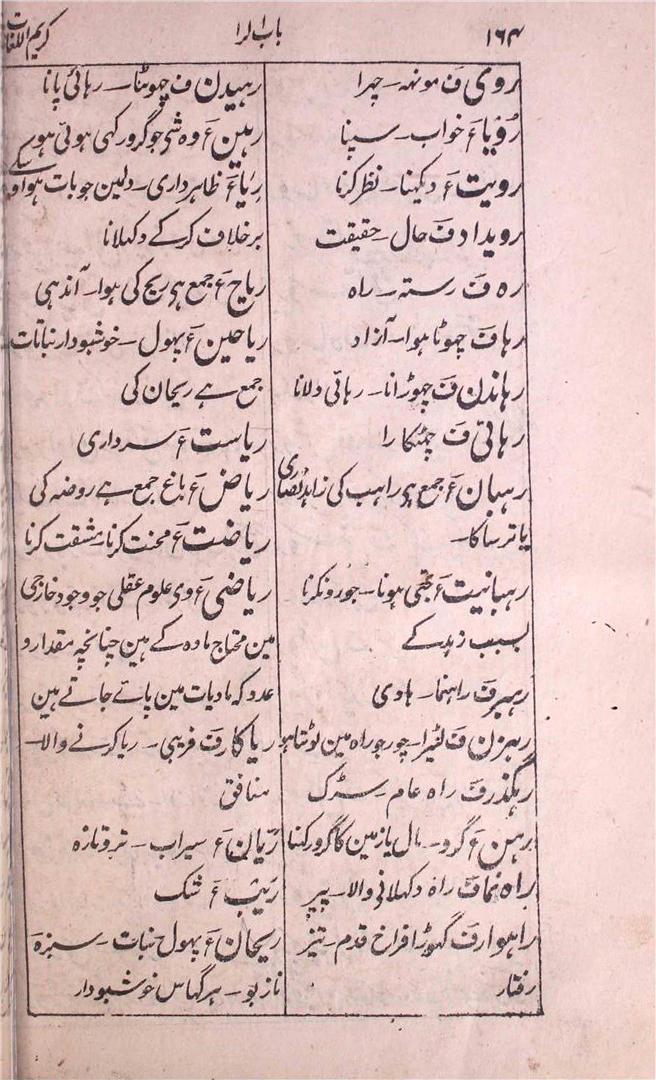 ۱۶۴
باب الرا
کریم اللغات
روی ف مونہہ۔ چہرا
رُؤیا ع خواب۔ سپنا
رویت ع دیکہنا۔ نظر کرنا
رویداد ف حال۔ حقیقت
رہ ف رستہ۔ راہ
رہا ف چہوٹا ہوا۔ آزاد
رہاندن ف چہوڑانا۔ رہائی دلانا
رہائی ف چہٹکارا
رہبان ع جمع ہی راہب کی زاہد نصاری
یا ترسا کا۔
رہبانیت ع جتی ہونا۔ جورو نکرنا
بسبب زہد کے
رہبر ف راہنما۔ ہادی
رہزن ف لٹیرا۔ چور جو راہ مین لوٹتا ہو
رہگذر ف راہ عام۔ سڑک
رہن ع گرو۔ مال یا زمین کا گرو رکہنا
راہ نما ف راہ دکہلانی والا۔ پیر
راہوار ف گہوڑا فراخ قدم۔ تیز
رفتار
رہیدن ف چہوٹنا۔ رہائی پانا
رہین ع وہ شی جو گرو رکہی ہوئی ہو
رِیاء ع ظاہرداری۔ دلمین جو بات ہو اوسکے
برخلاف کر کے دکہلانا
ریاح ع جمع ہی ریح کی ہوا۔ آندہی
ریاحین ع پہول۔ خوشبودار نباتات
جمع ہے ریحان کی
ریاست ع سرداری
ریاض ع باغ جمع ہے روضہ کی
ریاضت ع محنت کرنا۔ مشقت کرنا
ریاضی ع وی علوم عقلی جو وجود خارجی
مین محتاج مادہ کے ہین چنانچہ مقدار و
عدد کہ مادیات مین پائے جاتے ہین
ریاکار ف فریبی۔ ریا کرنے والا۔
منافق
ریّان ع سیراب۔ تروتازہ
ریب ع شک
ریحان ع پہول نبات۔ سبزہ
نازبو۔ ہر گہاس خوشبودار